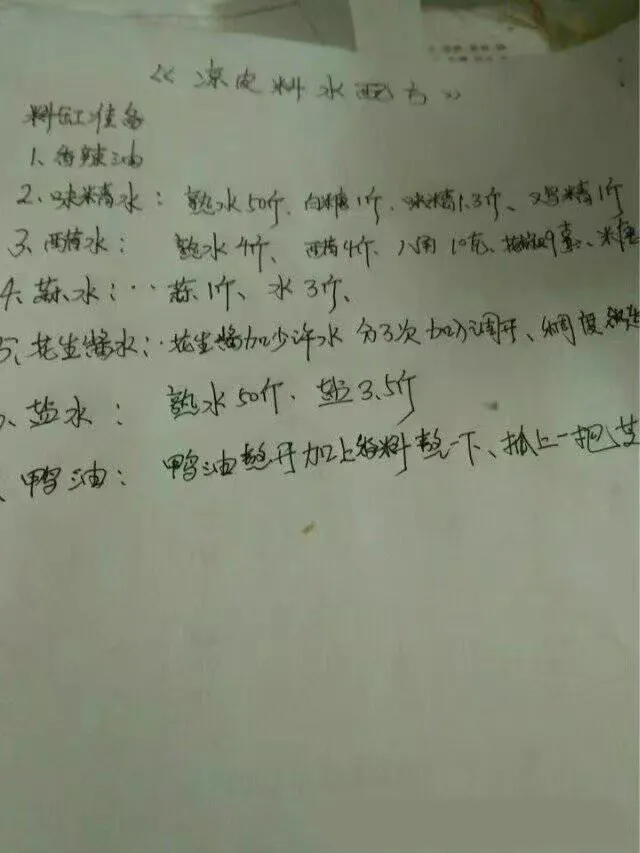 《凉皮料水配方》
料缸准备
1、香辣油
2、味精水：熟水50斤、白糖1斤、味精1.3斤、鸡精1斤
3、西莳水：熟水4斤、西莳4斤、八角10克、
4、蒜水：蒜1斤、水3斤、
5、花生酱水：花生酱加少许水 分3次加水调开、稠度
、盐水：熟水50斤、盐3.5斤
、鸭油：鸭油熬开加上香料熬一下、抓上一把